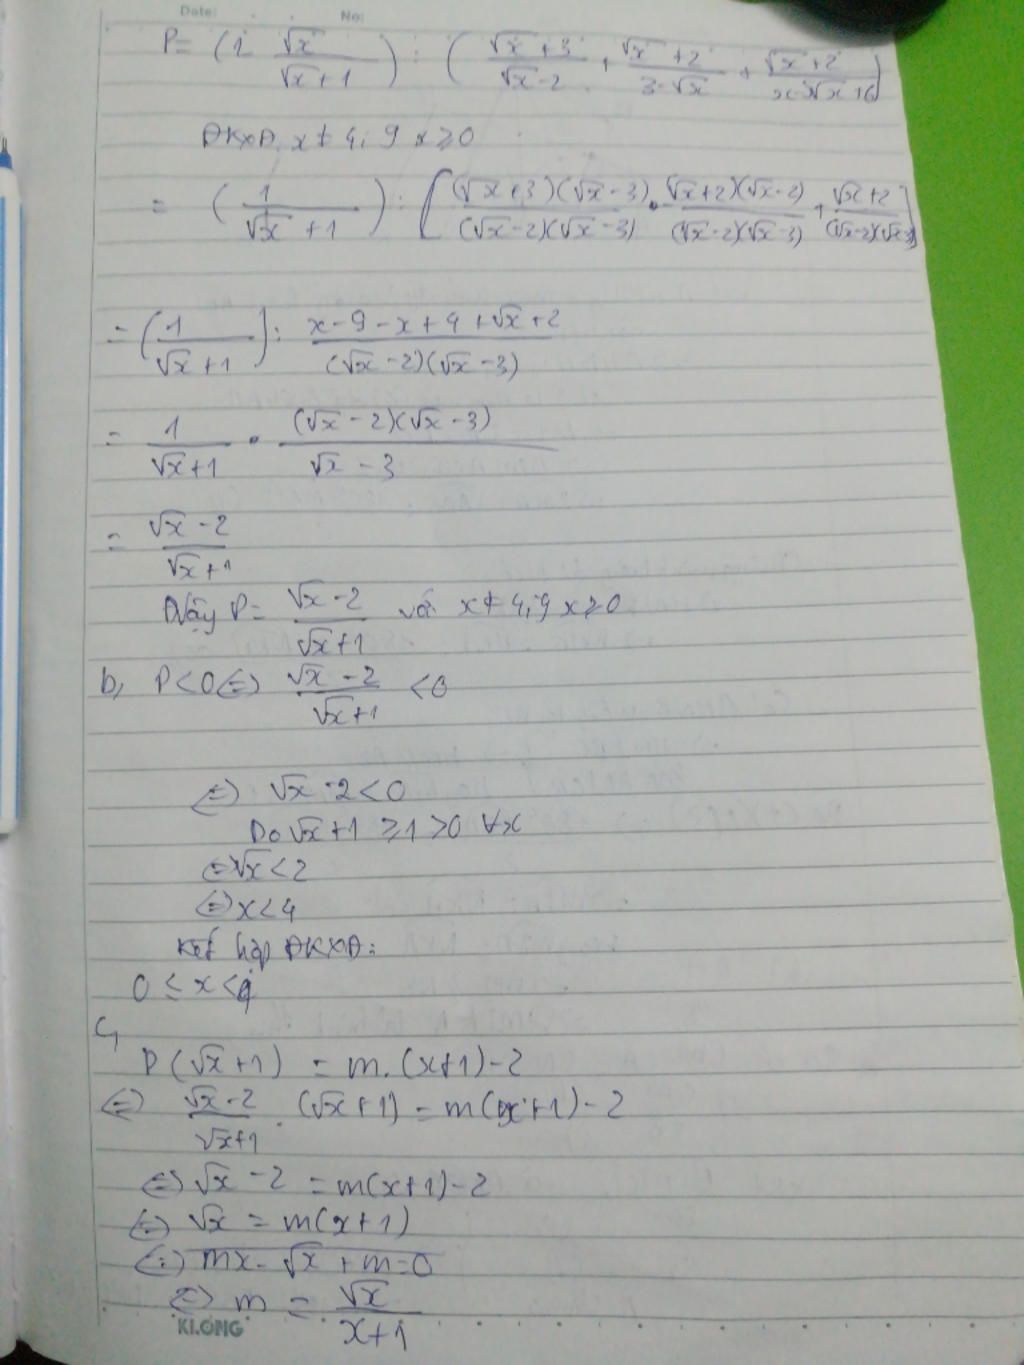 Date: No:
P= (1 - √x/(√x+1)) : ((√x+3)/(√x-2) + (√x+2)/(3-√x) + (√x+2)/(x-5√x+6))
ĐKXĐ: x≠4; 9 x≥0
= (1/(√x+1)) : [(√x+3)(√x-3)/(√x-2)(√x-3) - (√x+2)(√x-2)/(√x-2)(√x-3) + (√x+2)/(√x-2)(√x-3)]
= (1/(√x+1)) : (x-9-x+4+√x+2)/(√x-2)(√x-3)
= 1/(√x+1) . (√x-2)(√x-3)/(√x-3)
= (√x-2)/(√x+1)
Vậy P= (√x-2)/(√x+1) với x≠4; 9 x≥0
b, P<0 ⇔ (√x-2)/(√x+1) <0
⇔ √x-2<0
Do √x+1 ≥1>0 ∀x
⇔ √x<2
⇔ x<4
Kết hợp ĐKXĐ:
0 ≤ x <4
c,
P(√x+1) = m.(x+1)-2
⇔ (√x-2)/(√x+1) . (√x+1) = m(x+1)-2
⇔ √x-2 = m(x+1)-2
⇔ √x = m(x+1)
⇔ mx-√x+m=0
⇔ m = √x/(x+1)
KLONG